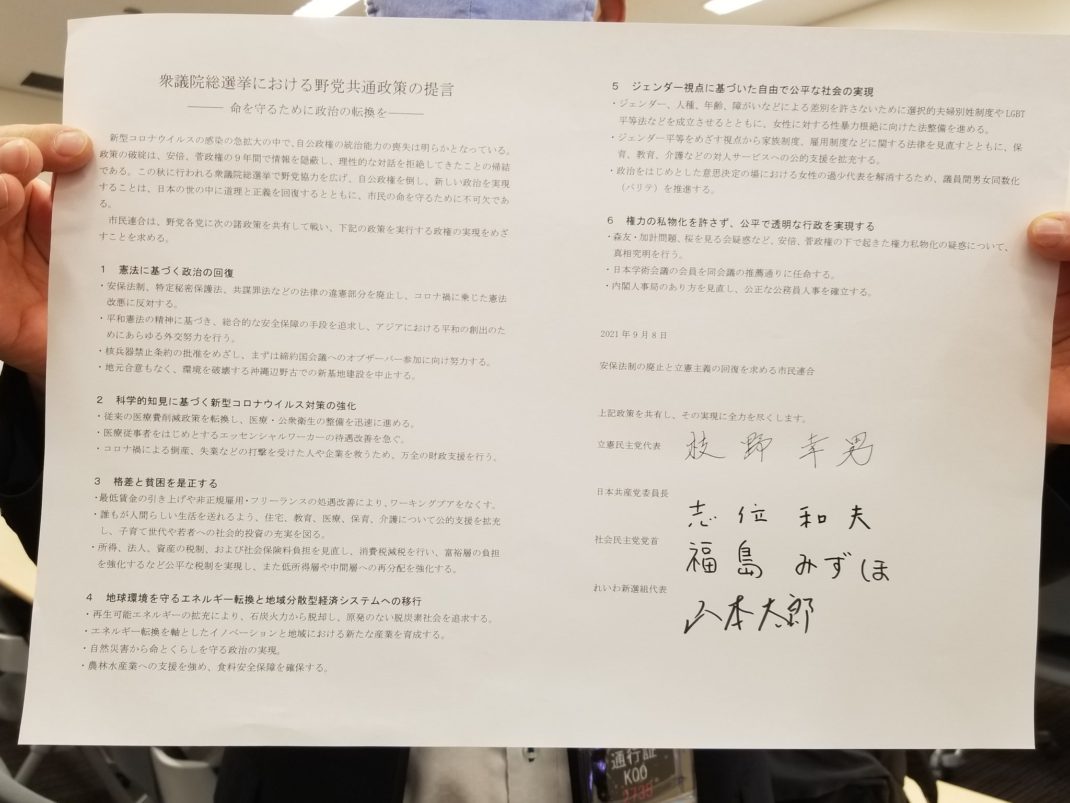 衆議院総選挙における野党共通政策の提言
――― 命を守るために政治の転換を―――
新型コロナウイルスの感染の急拡大の中で、自公政権の統治能力の喪失は明らかとなっている。
政策の破綻は、安倍、菅政権の9年間で情報を隠蔽し、理性的な対話を拒絶してきたことの帰結
である。この秋に行われる衆議院総選挙で野党協力を広げ、自公政権を倒し、新しい政治を実現
することは、日本の世の中に道理と正義を回復するとともに、市民の命を守るために不可欠であ
る。
市民連合は、野党各党に次の諸政策を共有して戦い、下記の政策を実行する政権の実現をめざ
すことを求める。
1 憲法に基づく政治の回復
・安保法制、特定秘密保護法、共謀罪法などの法律の違憲部分を廃止し、コロナ禍に乗じた憲法
改悪に反対する。
・平和憲法の精神に基づき、総合的な安全保障の手段を追求し、アジアにおける平和の創出のた
めにあらゆる外交努力を行う。
・核兵器禁止条約の批准をめざし、まずは締約国会議へのオブザーバー参加に向け努力する。
・地元合意もなく、環境を破壊する沖縄辺野古での新基地建設を中止する。
2 科学的知見に基づく新型コロナウイルス対策の強化
・従来の医療費削減政策を転換し、医療・公衆衛生の整備を迅速に進める。
・医療従事者をはじめとするエッセンシャルワーカーの待遇改善を急ぐ。
・コロナ禍による倒産、失業などの打撃を受けた人や企業を救うため、万全の財政支援を行う。
3 格差と貧困を是正する
・最低賃金の引き上げや非正規雇用・フリーランスの処遇改善により、ワーキングプアをなくす。
・誰もが人間らしい生活を送れるよう、住宅、教育、医療、保育、介護について公的支援を拡充
し、子育て世代や若者への社会的投資の充実を図る。
・所得、法人、資産の税制、および社会保険料負担を見直し、消費税減税を行い、富裕層の負担
を強化するなど公平な税制を実現し、また低所得層や中間層への再分配を強化する。
4 地球環境を守るエネルギー転換と地域分散型経済システムへの移行
・再生可能エネルギーの拡充により、石炭火力から脱却し、原発のない脱炭素社会を追求する。
・エネルギー転換を軸としたイノベーションと地域における新たな産業を育成する。
・自然災害から命とくらしを守る政治の実現。
・農林水産業への支援を強め、食料安全保障を確保する。
5 ジェンダー視点に基づいた自由で公平な社会の実現
・ジェンダー、人種、年齢、障がいなどによる差別を許さないために選択的夫婦別姓制度やLGBT
平等法などを成立させるとともに、女性に対する性暴力根絶に向けた法整備を進める。
・ジェンダー平等をめざす視点から家族制度、雇用制度などに関する法律を見直すとともに、保
育、教育、介護などの対人サービスへの公的支援を拡充する。
・政治をはじめとした意思決定の場における女性の過少代表を解消するため、議員間男女同数化
(パリテ)を推進する。
6 権力の私物化を許さず、公平で透明な行政を実現する
・森友・加計問題、桜を見る会疑惑など、安倍、菅政権の下で起きた権力私物化の疑惑について、
真相究明を行う。
・日本学術会議の会員を同会議の推薦通りに任命する。
・内閣人事局のあり方を見直し、公正な公務員人事を確立する。
2021年9月8日
安保法制の廃止と立憲主義の回復を求める市民連合
上記政策を共有し、その実現に全力を尽くします。
立憲民主党代表 枝野幸男
日本共産党委員長
志位和夫
社会民主党党首
福島みずほ
れいわ新選組代表
山本太郎
通行証
K00
2735